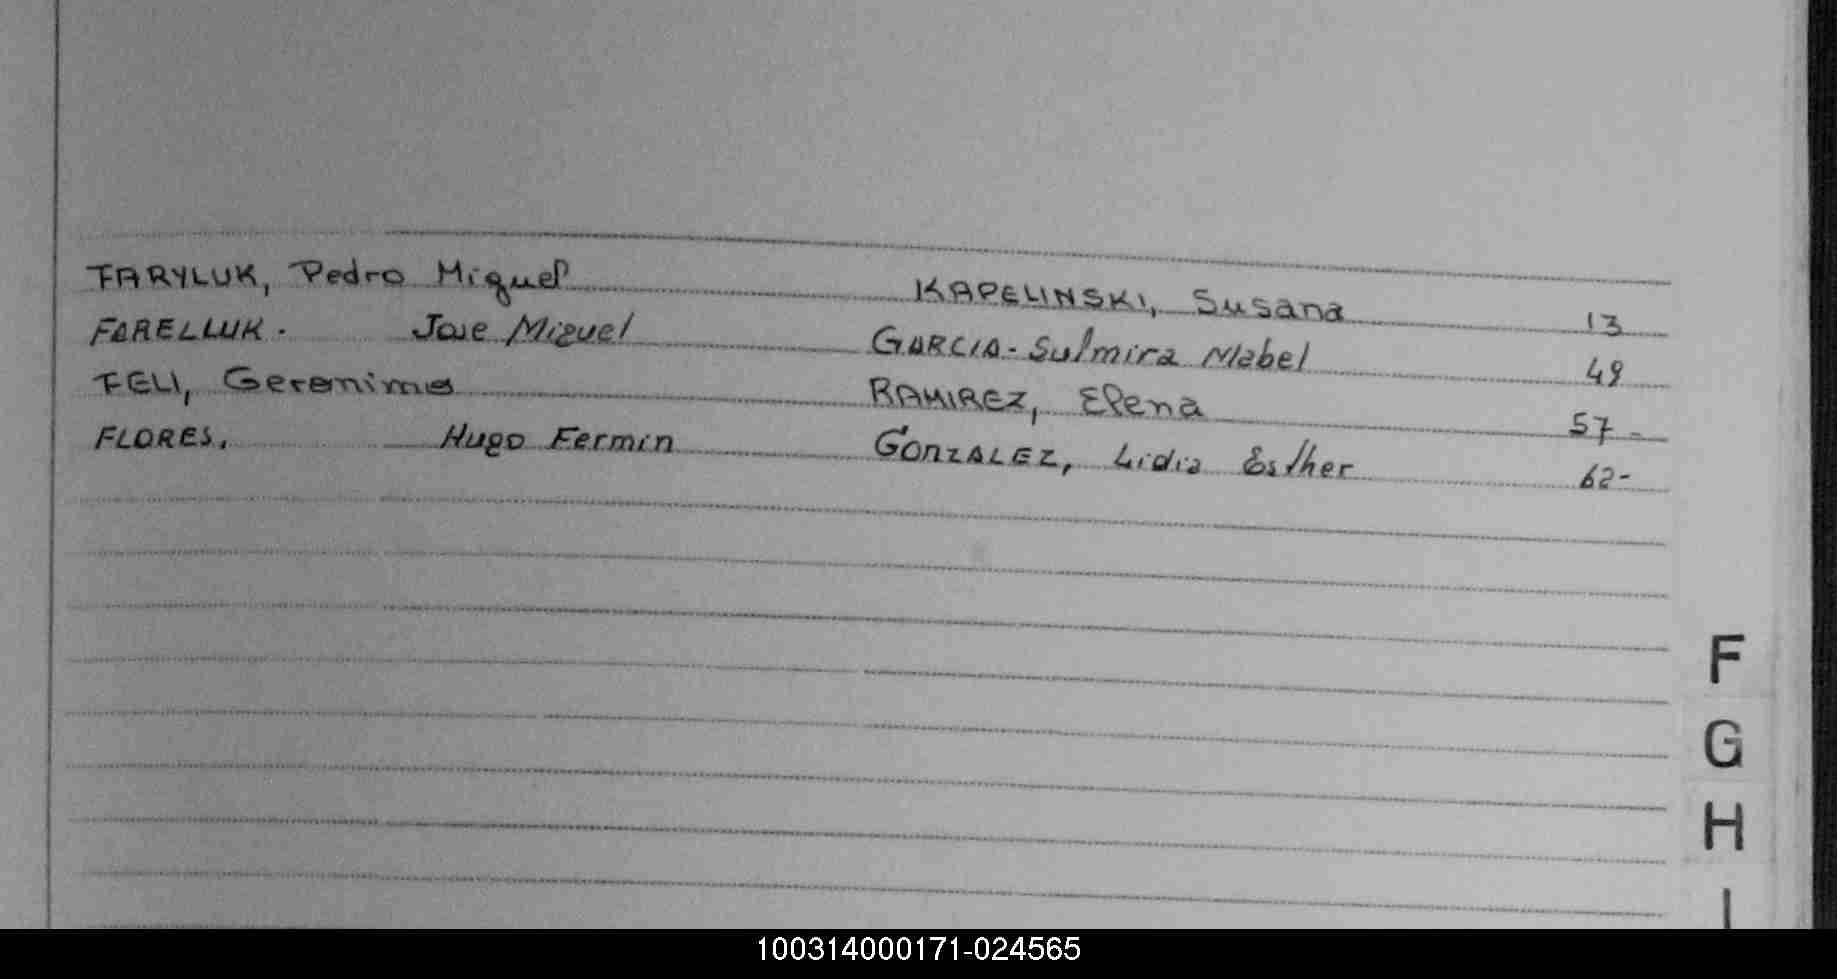 FARYLUK, Pedro Miguel KAPELINSKI, Susana 13
FARELLUK. Jose Miguel GARCIA - Sulmira Mabel 49
FELI, Geronimo RAMIREZ, Elena 57 -
FLORES, Hugo Fermin GONZALEZ, Lidia Esther 62 -
F
G
H
I
100314000171-024565